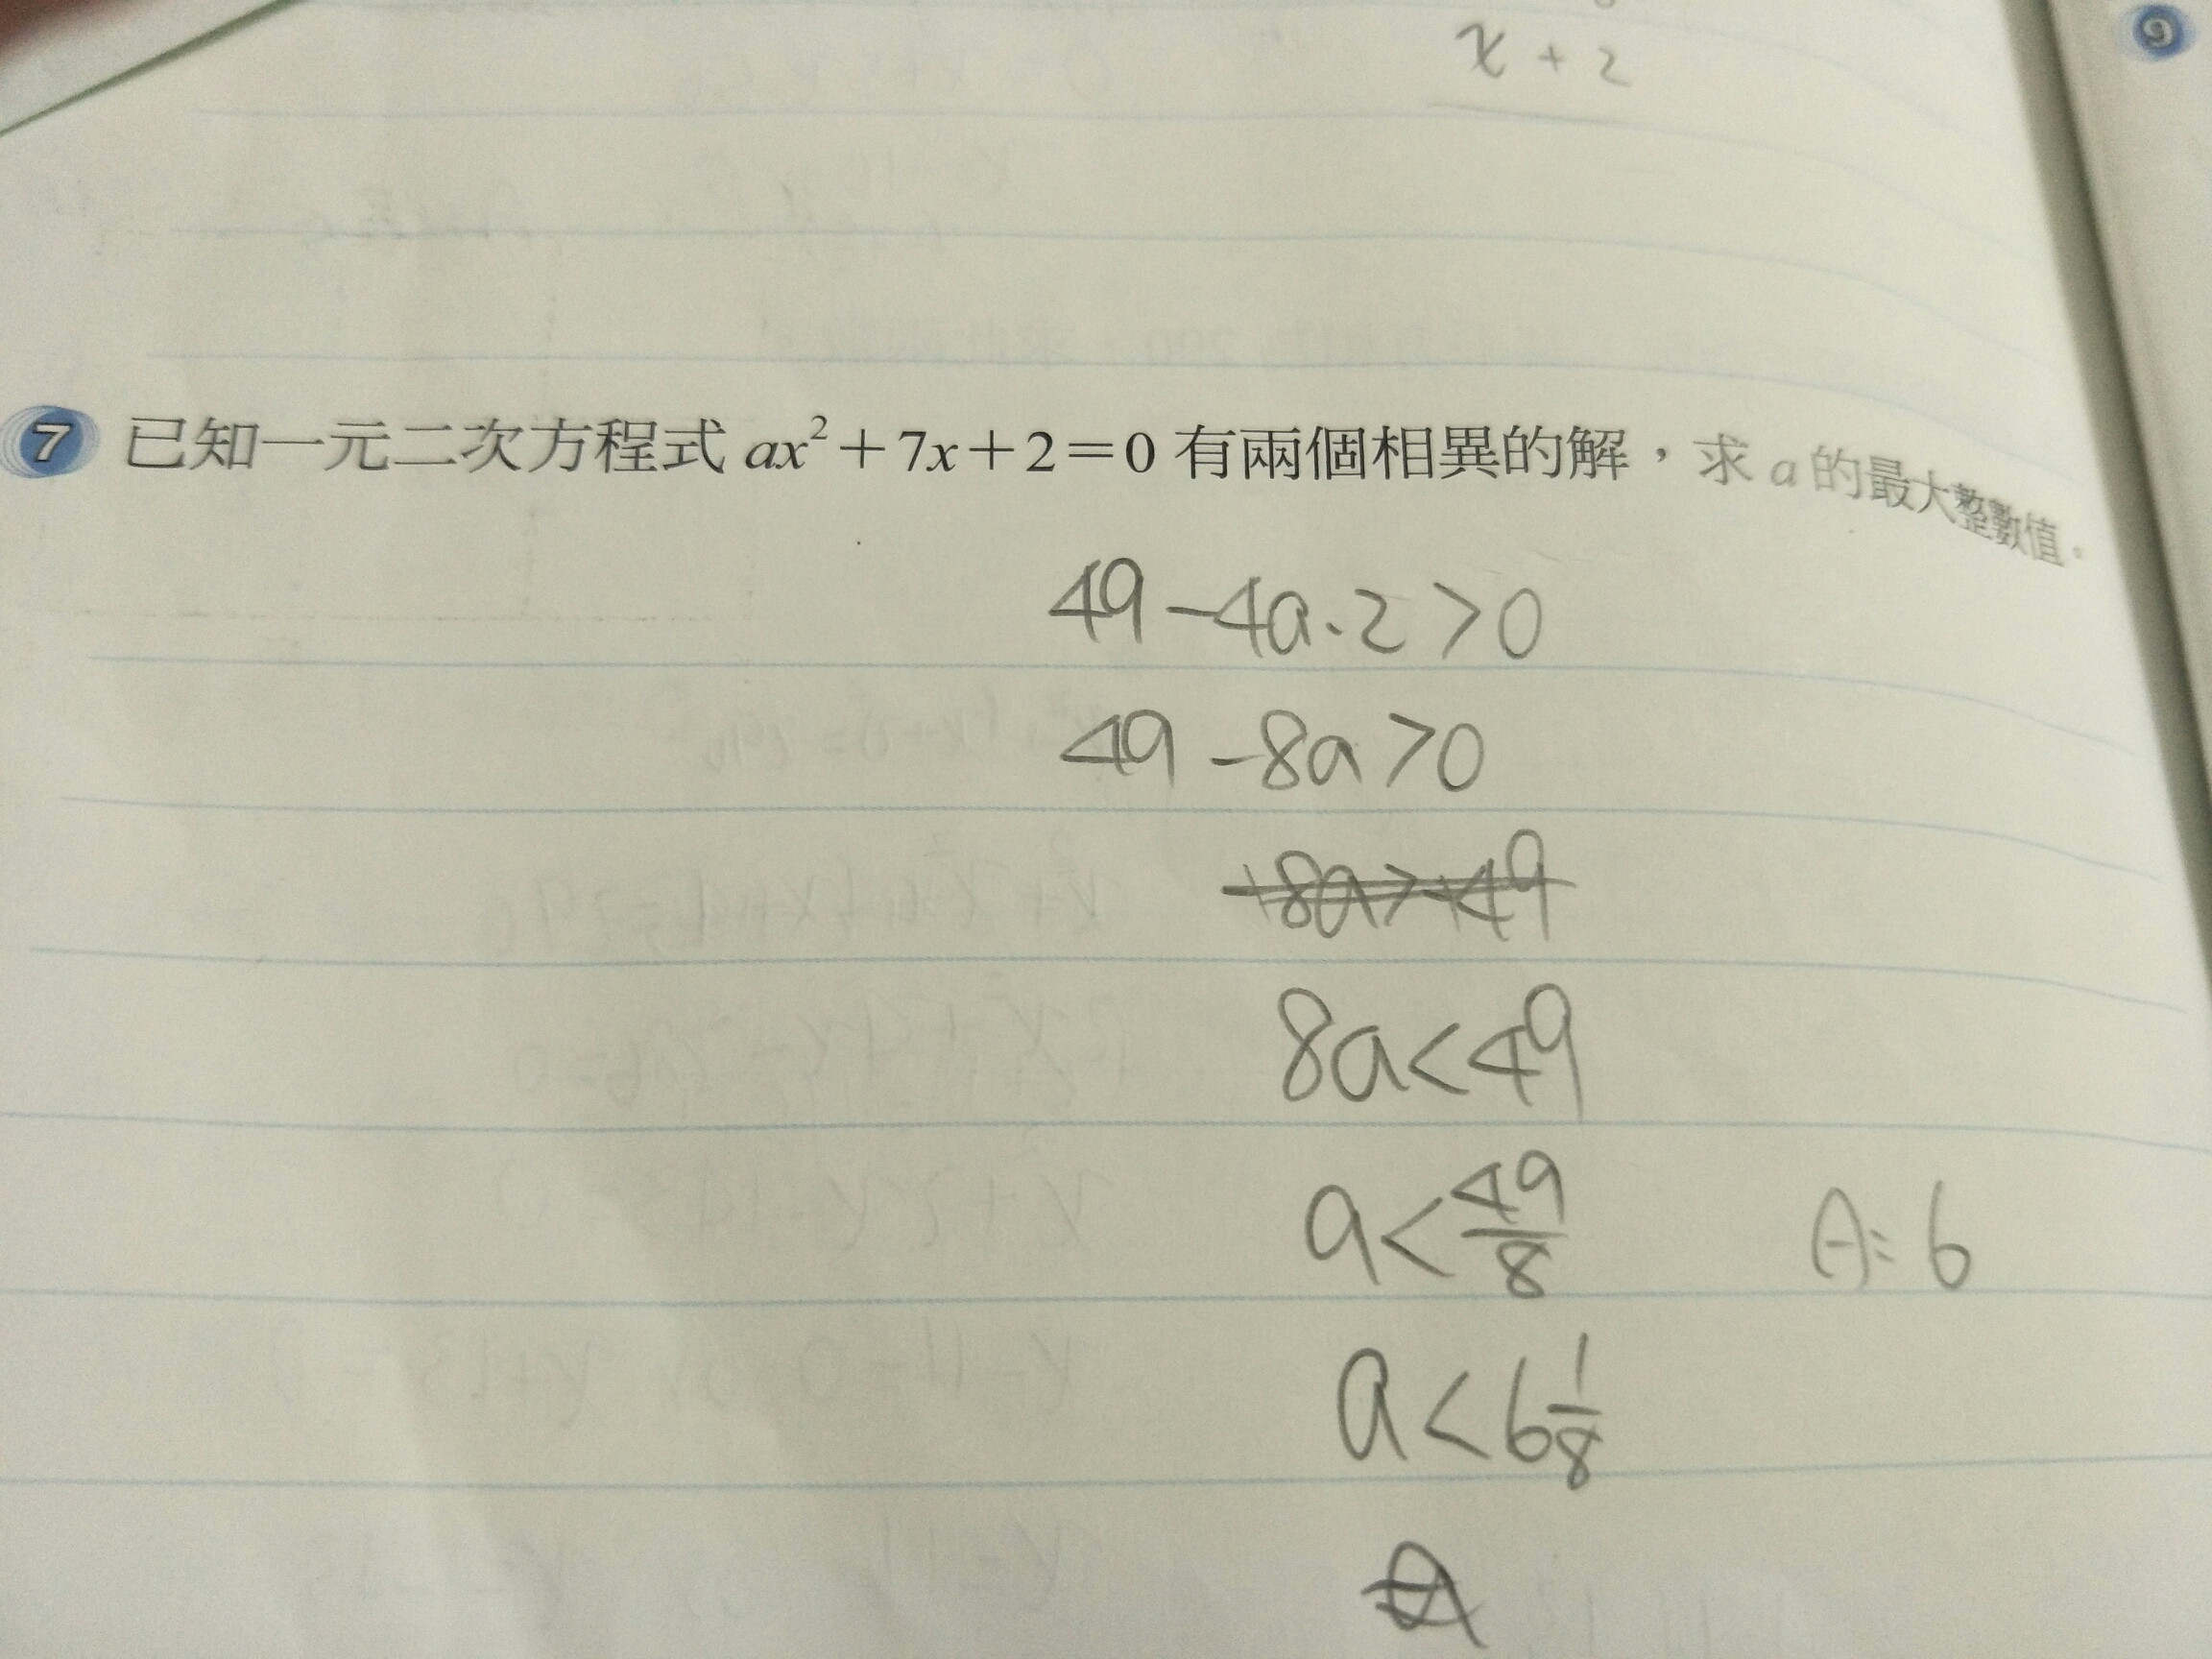 x + 2
9
7 已知一元二次方程式 ax²+7x+2=0 有兩個相異的解，求 a 的最大整數值。
49-4a·2>0
49-8a>0
8a<49
a<49/8
A: 6
a<6 1/8